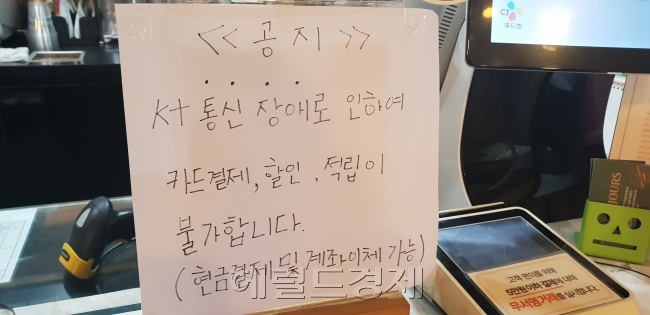 << 공 지 >>
Kt 통신 장애로 인하여
카드결제, 할인, 적립이
불가합니다.
(현금결제 및 계좌이체 가능)
헤럴드경제
CJ
푸드빌
HOURS
고객 편의를 위해
5만원이하 결제에 대해
무서명거래를 실시합니다.